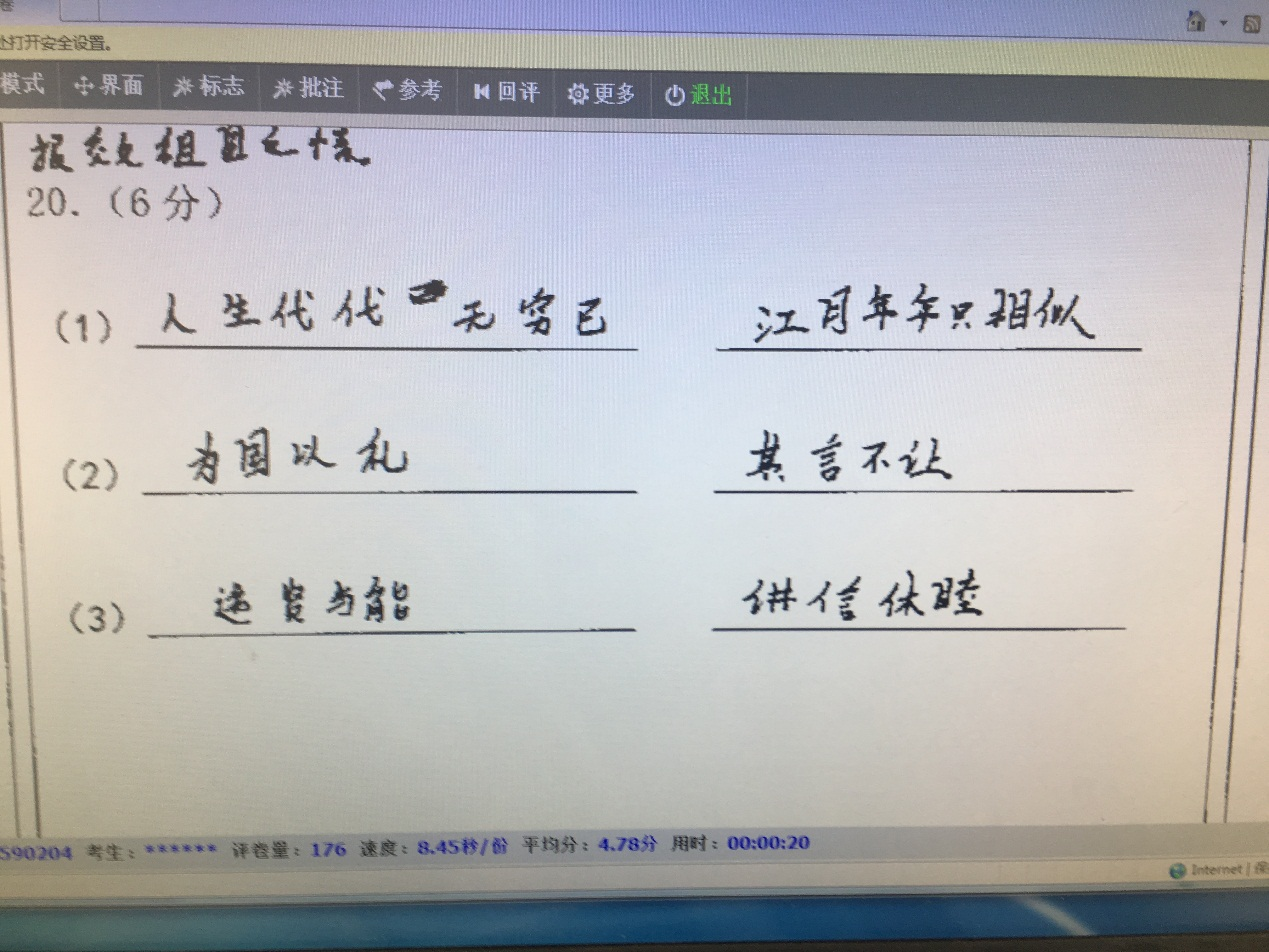 卷
处打开安全设置。
模式 界面 标志 批注 参考 回评 更多 退出
报效祖国之情
20.(6分)
(1) 人生代代无穷已 江月年年只相似
(2) 为国以礼 其言不让
(3) 选贤与能 讲信休睦
590204 考生:****** 评卷量:176 速度:8.45秒/份 平均分:4.78分 用时:00:00:20
Internet | 保